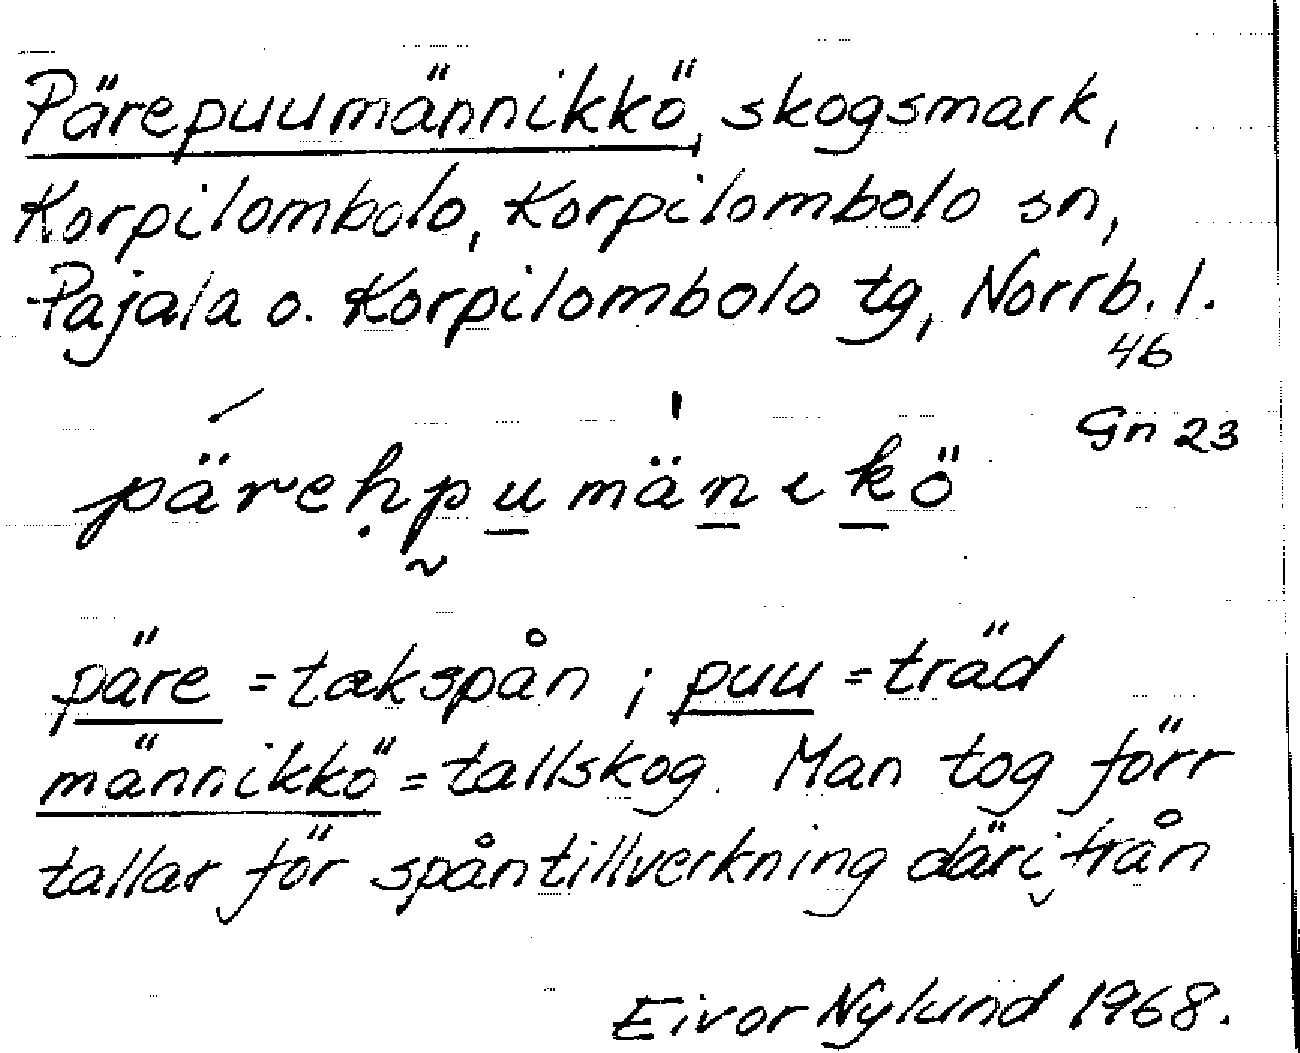 Pärepuumännikkö, skogsmark,
Korpilombolo, Korpilombolo sn,
Pajala o. Korpilombolo tg, Norrb. l.
46
Gn 23
pärehpumänikö
päre = takspån ; puu = träd
männikkö = tallskog. Man tog förr
tallar för spåntillverkning därifrån
Eivor Nylund 1968.